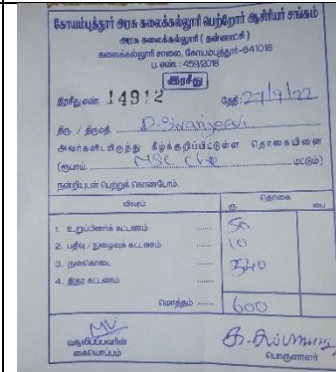 கோயம்புத்தூர் அரசு கலைக்கல்லூரி பெற்றோர் ஆசிரியர் சங்கம்
அரசு கலைக்கல்லூரி (தன்னாட்சி)
கலைக்கல்லூரி சாலை, கோயம்புத்தூர்-641018
ப. எண் : 459/2018
இரசீது
இரசீது எண். 14912 தேதி: 27/9/22
திரு / திருமதி
அவர்களிடமிருந்து கீழ்க்குறிப்பிட்டுள்ள தொகையினை
(ரூபாய் MSC Che மட்டும்)
நன்றியுடன் பெற்றுக் கொண்டோம்.
விவரம் தொகை
ரூ பை
1. உறுப்பினர்க் கட்டணம் ........ 50
2. பதிவு / நுழைவுக் கட்டணம் ........ 10
3. நன்கொடை ........ 540
4. இதர கட்டணம் ........
மொத்தம் ........ 600
வசூலிப்பவரின்
கையொப்பம்
பொருளாளர்